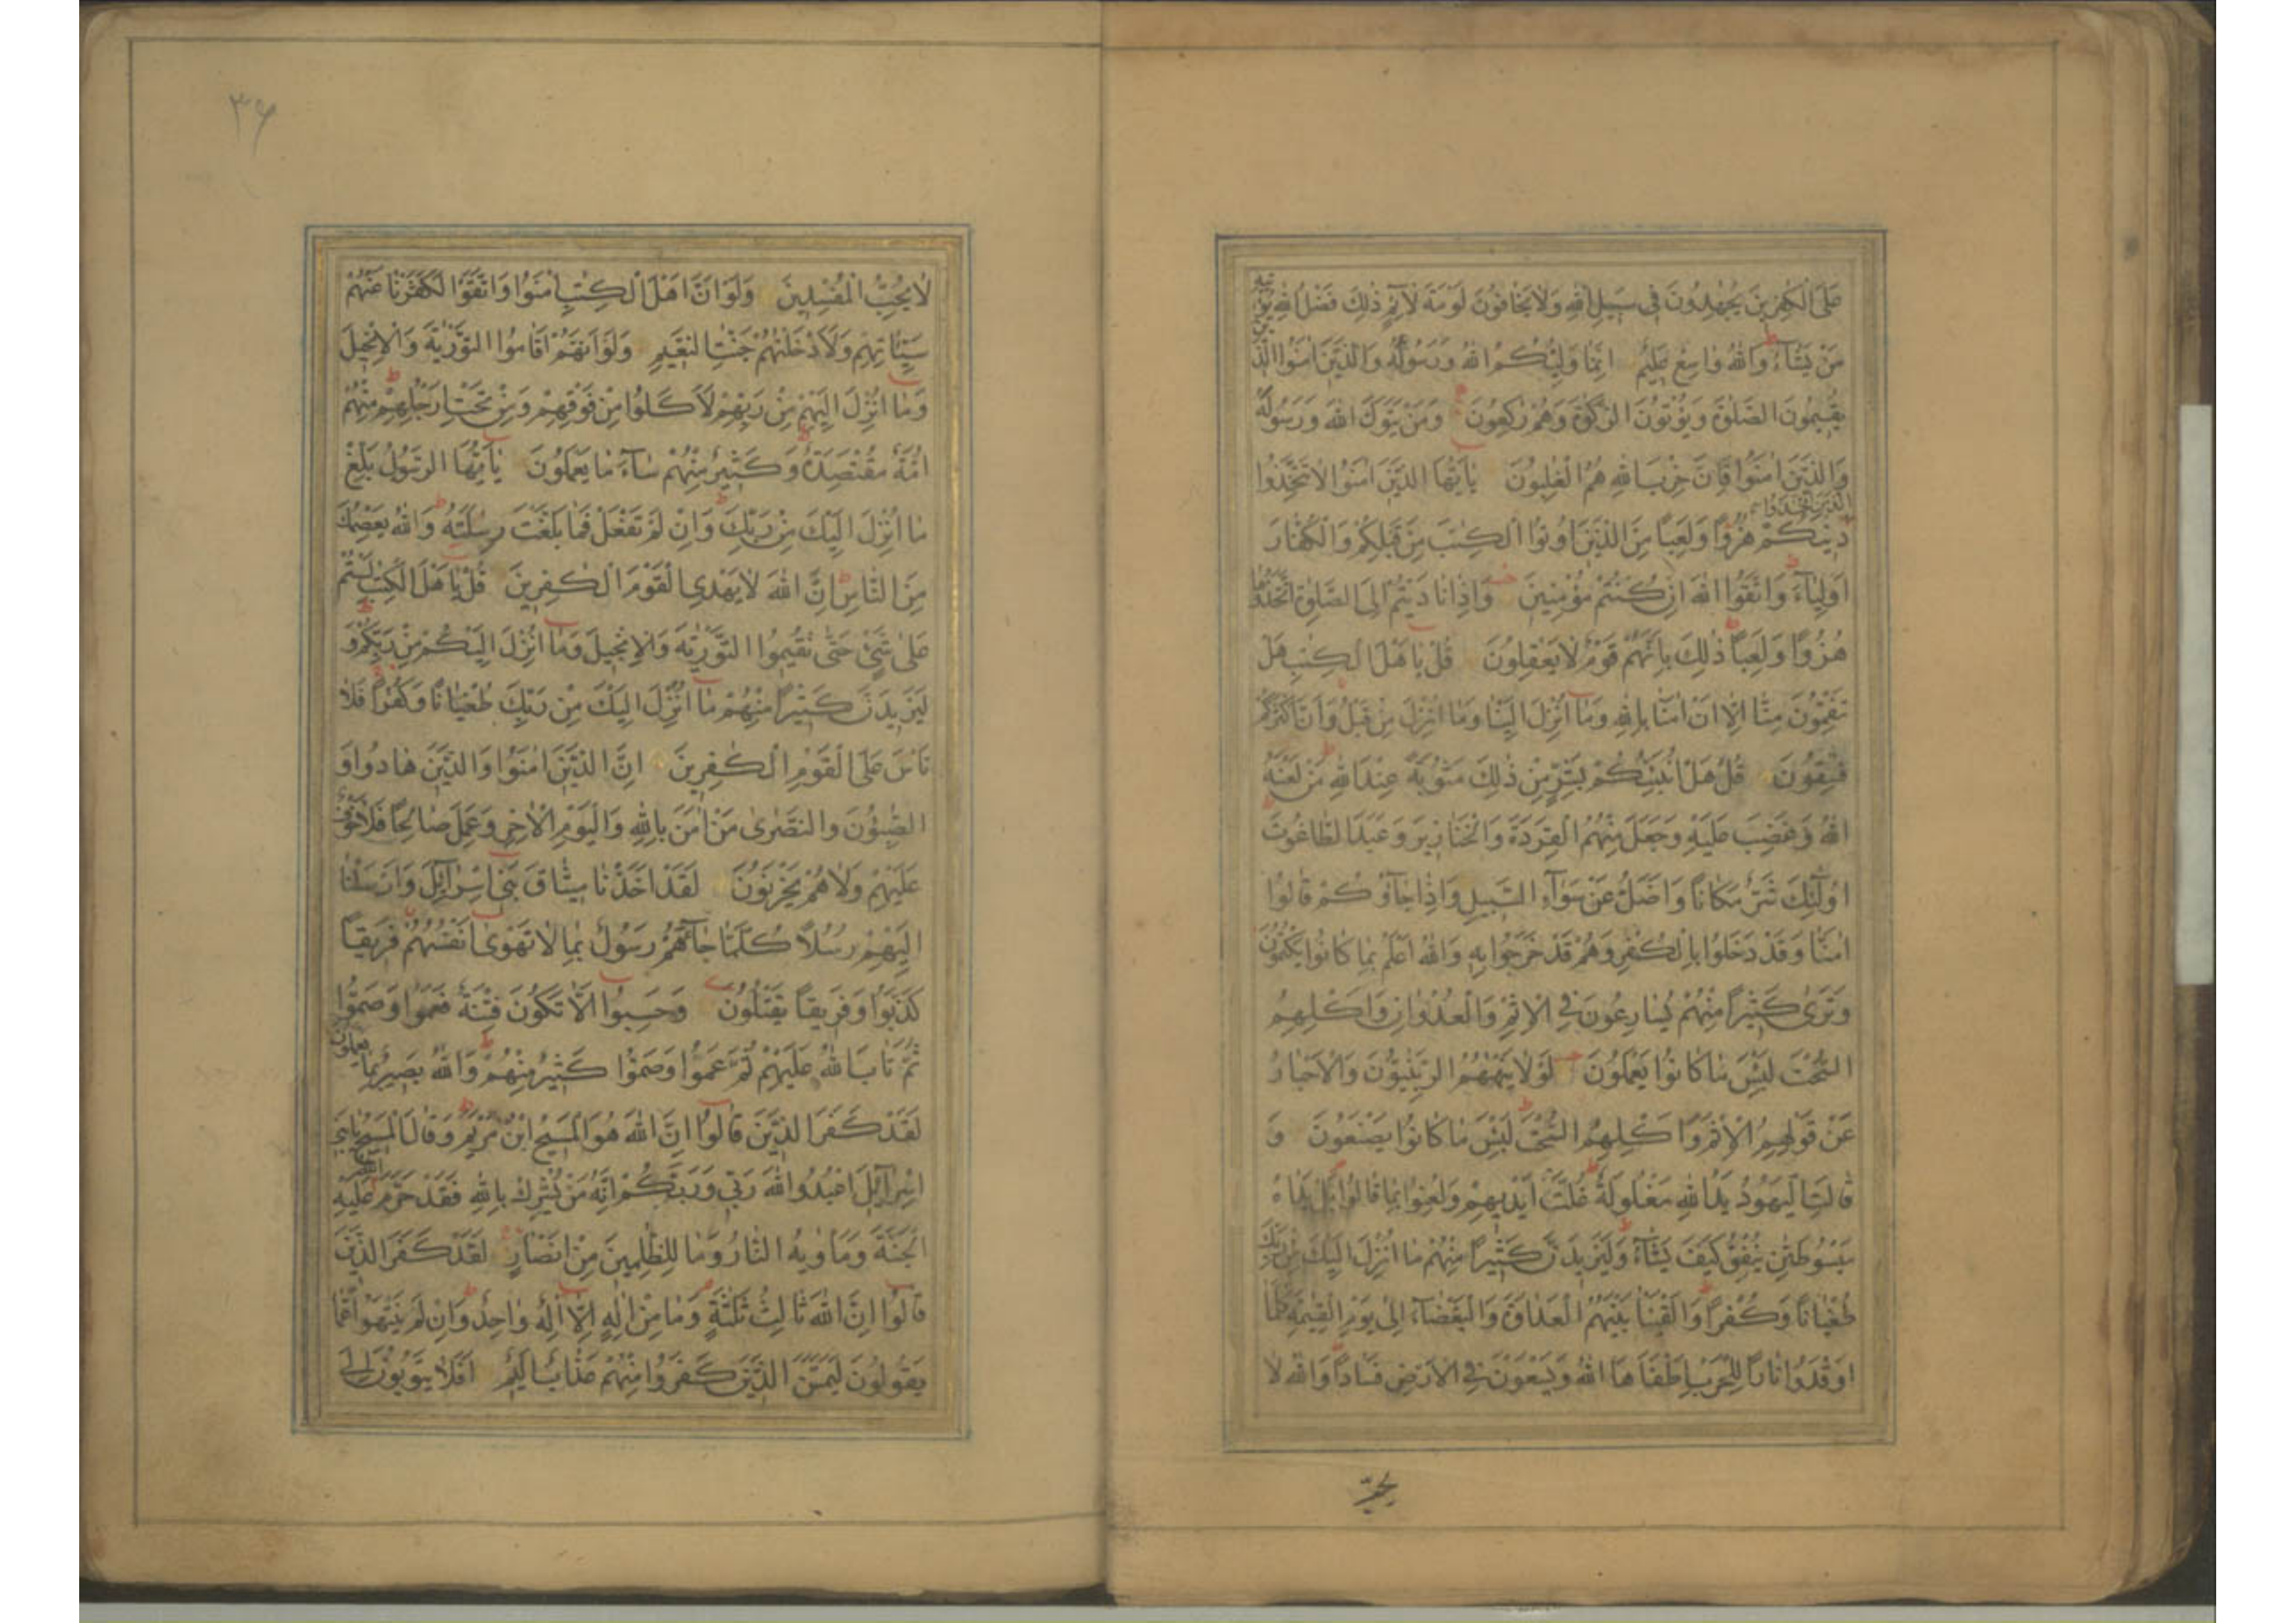 عَلَى الْكٰفِرِينَ يُجٰهِدُونَ فِي سَبِيلِ اللهِ وَلَا يَخَافُونَ لَوْمَةَ لَائِمٍ ذٰلِكَ فَضْلُ اللهِ يُؤْتِيهِ
مَنْ يَشَآءُ وَاللهُ وَاسِعٌ عَلِيمٌ اِنَّمَا وَلِيُّكُمُ اللهُ وَرَسُولُهُ وَالَّذِينَ اٰمَنُوا الَّذِينَ
يُقِيمُونَ الصَّلٰوةَ وَيُؤْتُونَ الزَّكٰوةَ وَهُمْ رٰكِعُونَ وَمَنْ يَتَوَلَّ اللهَ وَرَسُولَهُ
وَالَّذِينَ اٰمَنُوا فَاِنَّ حِزْبَ اللهِ هُمُ الْغٰلِبُونَ يٰاَيُّهَا الَّذِينَ اٰمَنُوا لَا تَتَّخِذُوا
الَّذِينَ اتَّخَذُوا
دِينَكُمْ هُزُوًا وَلَعِبًا مِنَ الَّذِينَ اُوتُوا الْكِتٰبَ مِنْ قَبْلِكُمْ وَالْكُفَّارَ
اَوْلِيَآءَ وَاتَّقُوا اللهَ اِنْ كُنْتُمْ مُؤْمِنِينَ وَاِذَا نَادَيْتُمْ اِلَى الصَّلٰوةِ اتَّخَذُوهَا
هُزُوًا وَلَعِبًا ذٰلِكَ بِاَنَّهُمْ قَوْمٌ لَا يَعْقِلُونَ قُلْ يٰاَهْلَ الْكِتٰبِ هَلْ
تَنْقِمُونَ مِنَّا اِلَّا اَنْ اٰمَنَّا بِاللهِ وَمَا اُنْزِلَ اِلَيْنَا وَمَا اُنْزِلَ مِنْ قَبْلُ وَاَنَّ اَكْثَرَكُمْ
فٰسِقُونَ قُلْ هَلْ اُنَبِّئُكُمْ بِشَرٍّ مِنْ ذٰلِكَ مَثُوبَةً عِنْدَ اللهِ مَنْ لَعَنَهُ
اللهُ وَغَضِبَ عَلَيْهِ وَجَعَلَ مِنْهُمُ الْقِرَدَةَ وَالْخَنَازِيرَ وَعَبَدَ الطَّاغُوتَ
اُولٰئِكَ شَرٌّ مَكَانًا وَاَضَلُّ عَنْ سَوَآءِ السَّبِيلِ وَاِذَا جَآؤُكُمْ قَالُوا
اٰمَنَّا وَقَدْ دَخَلُوا بِالْكُفْرِ وَهُمْ قَدْ خَرَجُوا بِهِ وَاللهُ اَعْلَمُ بِمَا كَانُوا يَكْتُمُونَ
وَتَرٰى كَثِيرًا مِنْهُمْ يُسَارِعُونَ فِي الْاِثْمِ وَالْعُدْوَانِ وَاَكْلِهِمُ
السُّحْتَ لَبِئْسَ مَا كَانُوا يَعْمَلُونَ لَوْلَا يَنْهٰهُمُ الرَّبّٰنِيُّونَ وَالْاَحْبَارُ
عَنْ قَوْلِهِمُ الْاِثْمَ وَاَكْلِهِمُ السُّحْتَ لَبِئْسَ مَا كَانُوا يَصْنَعُونَ وَ
قَالَتِ الْيَهُودُ يَدُ اللهِ مَغْلُولَةٌ غُلَّتْ اَيْدِيهِمْ وَلُعِنُوا بِمَا قَالُوا بَلْ يَدَاهُ
مَبْسُوطَتٰنِ يُنْفِقُ كَيْفَ يَشَآءُ وَلَيَزِيدَنَّ كَثِيرًا مِنْهُمْ مَا اُنْزِلَ اِلَيْكَ مِنْ رَبِّكَ
طُغْيَانًا وَكُفْرًا وَاَلْقَيْنَا بَيْنَهُمُ الْعَدَاوَةَ وَالْبَغْضَآءَ اِلٰى يَوْمِ الْقِيٰمَةِ كُلَّمَا
اَوْقَدُوا نَارًا لِلْحَرْبِ اَطْفَاَهَا اللهُ وَيَسْعَوْنَ فِي الْاَرْضِ فَسَادًا وَاللهُ لَا
يُحِبُّ
٣٩
لَا يُحِبُّ الْمُفْسِدِينَ وَلَوْ اَنَّ اَهْلَ الْكِتٰبِ اٰمَنُوا وَاتَّقَوْا لَكَفَّرْنَا عَنْهُمْ
سَيِّاٰتِهِمْ وَلَاَدْخَلْنٰهُمْ جَنّٰتِ النَّعِيمِ وَلَوْ اَنَّهُمْ اَقَامُوا التَّوْرٰيةَ وَالْاِنْجِيلَ
وَمَا اُنْزِلَ اِلَيْهِمْ مِنْ رَبِّهِمْ لَاَكَلُوا مِنْ فَوْقِهِمْ وَمِنْ تَحْتِ اَرْجُلِهِمْ مِنْهُمْ
اُمَّةٌ مُقْتَصِدَةٌ وَكَثِيرٌ مِنْهُمْ سَآءَ مَا يَعْمَلُونَ يٰاَيُّهَا الرَّسُولُ بَلِّغْ
مَا اُنْزِلَ اِلَيْكَ مِنْ رَبِّكَ وَاِنْ لَمْ تَفْعَلْ فَمَا بَلَّغْتَ رِسٰلَتَهُ وَاللهُ يَعْصِمُكَ
مِنَ النَّاسِ اِنَّ اللهَ لَا يَهْدِي الْقَوْمَ الْكٰفِرِينَ قُلْ يٰاَهْلَ الْكِتٰبِ لَسْتُمْ
عَلٰى شَيْءٍ حَتّٰى تُقِيمُوا التَّوْرٰيةَ وَالْاِنْجِيلَ وَمَا اُنْزِلَ اِلَيْكُمْ مِنْ رَبِّكُمْ وَ
لَيَزِيدَنَّ كَثِيرًا مِنْهُمْ مَا اُنْزِلَ اِلَيْكَ مِنْ رَبِّكَ طُغْيَانًا وَكُفْرًا فَلَا
تَاْسَ عَلَى الْقَوْمِ الْكٰفِرِينَ اِنَّ الَّذِينَ اٰمَنُوا وَالَّذِينَ هَادُوا وَ
الصّٰبِئُونَ وَالنَّصٰرٰى مَنْ اٰمَنَ بِاللهِ وَالْيَوْمِ الْاٰخِرِ وَعَمِلَ صَالِحًا فَلَا خَوْفٌ
عَلَيْهِمْ وَلَا هُمْ يَحْزَنُونَ لَقَدْ اَخَذْنَا مِيثَاقَ بَنِي اِسْرَآئِلَ وَاَرْسَلْنَا
اِلَيْهِمْ رُسُلًا كُلَّمَا جَآءَهُمْ رَسُولٌ بِمَا لَا تَهْوٰى اَنْفُسُهُمْ فَرِيقًا
كَذَّبُوا وَفَرِيقًا يَقْتُلُونَ وَحَسِبُوا اَلَّا تَكُونَ فِتْنَةٌ فَعَمُوا وَصَمُّوا
ثُمَّ تَابَ اللهُ عَلَيْهِمْ ثُمَّ عَمُوا وَصَمُّوا كَثِيرٌ مِنْهُمْ وَاللهُ بَصِيرٌ بِمَا يَعْمَلُونَ
لَقَدْ كَفَرَ الَّذِينَ قَالُوا اِنَّ اللهَ هُوَ الْمَسِيحُ ابْنُ مَرْيَمَ وَقَالَ الْمَسِيحُ يٰبَنِي
اِسْرَآئِلَ اعْبُدُوا اللهَ رَبِّي وَرَبَّكُمْ اِنَّهُ مَنْ يُشْرِكْ بِاللهِ فَقَدْ حَرَّمَ اللهُ عَلَيْهِ
الْجَنَّةَ وَمَاْوٰيهُ النَّارُ وَمَا لِلظّٰلِمِينَ مِنْ اَنْصَارٍ لَقَدْ كَفَرَ الَّذِينَ
قَالُوا اِنَّ اللهَ ثَالِثُ ثَلٰثَةٍ وَمَا مِنْ اِلٰهٍ اِلَّا اِلٰهٌ وَاحِدٌ وَاِنْ لَمْ يَنْتَهُوا عَمَّا
يَقُولُونَ لَيَمَسَّنَّ الَّذِينَ كَفَرُوا مِنْهُمْ عَذَابٌ اَلِيمٌ اَفَلَا يَتُوبُونَ اِلَى